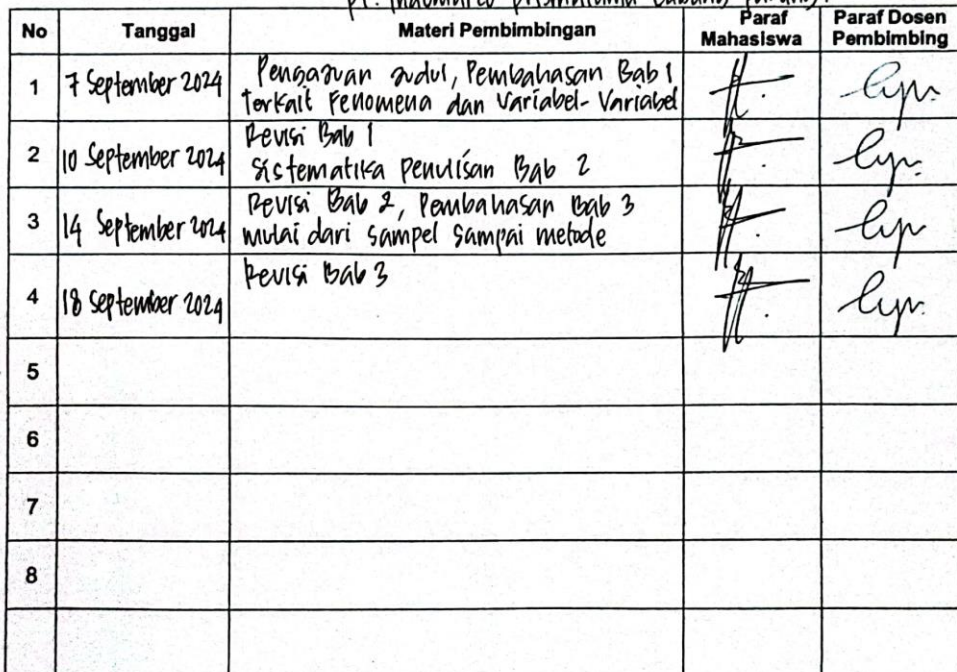 PT. Indomarco Prismatama Cabang
No Tanggal Materi Pembimbingan Paraf Mahasiswa Paraf Dosen Pembimbing
1 7 September 2024 Pengajuan Judul, Pembahasan Bab 1
terkait Fenomena dan Variabel-Variabel
2 10 September 2024 Revisi Bab 1
Sistematika Penulisan Bab 2
3 14 September 2024 Revisi Bab 2, Pembahasan Bab 3
mulai dari sampel sampai metode
4 18 September 2024 Revisi Bab 3
5
6
7
8